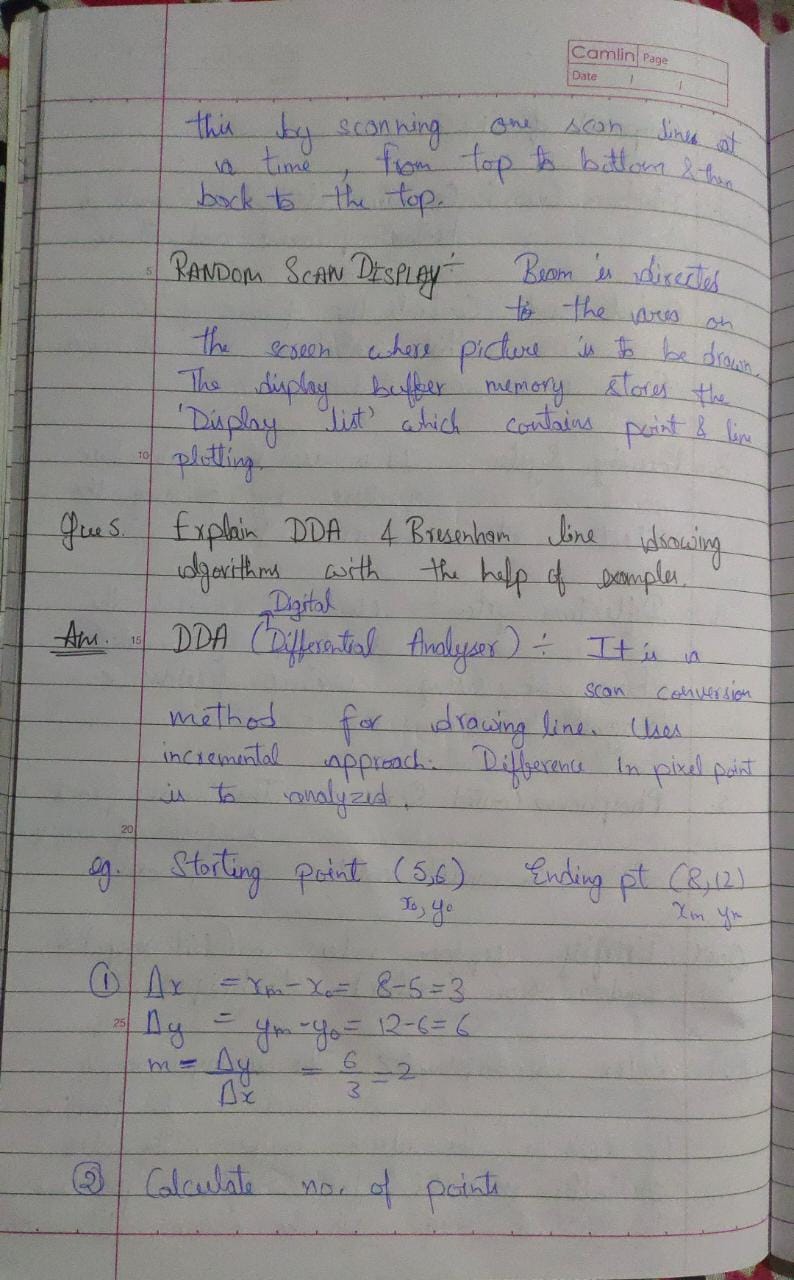 Camlin Page
Date / /
this by scanning one scan lines at
a time, from top to bottom & then
back to the top.
5 RANDOM SCAN DISPLAY÷ Beam is directed
to the area on
the screen where picture is to be drawn.
The display buffer memory stores the
'Display list' which contains point & line
10 plotting.
Ques. Explain DDA & Bresenham line drawing
algorithms with the help of examples.
Digital
Ans. 15 DDA (Differential Analyser) ÷ It is a
scan conversion
method for drawing line. Uses
incremental approach. Difference in pixel point
is to analyzed.
20
eg. Starting point (5,6) Ending pt (8,12)
x₀, y₀ xₘ yₘ
① Δx = xₘ-x₀ = 8-5=3
25 Δy = yₘ-y₀ = 12-6=6
m = Δy/Δx = 6/3 = 2
② Calculate no. of points